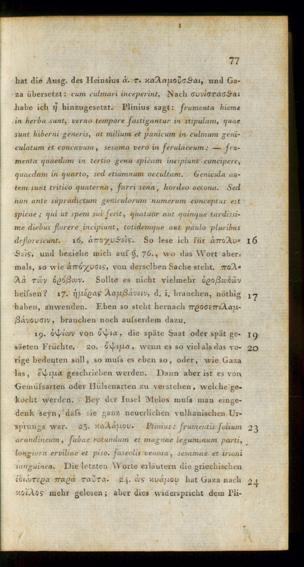 77
hat die Ausg. des Heinsius ἀ. τ. καλαμοῦσθαι, und Ga-
za übersetzt: cum culmari inceperint. Nach συνίστασθαι
habe ich ἢ hinzugesetzt. Plinius sagt: frumenta hieme
in herba sunt, verno tempore fastigantur in stipulam, quae
sunt hiberni generis, at milium et panicum in culmum geni-
culatum et concavum, sesama vero in ferulaceum: — fru-
menta quaedam in tertio genu spicam incipiunt concipere,
quaedam in quarto, sed etiamnum occultam. Genicula au-
tem sunt tritico quaterna, farri sena, hordeo octona. Sed
non ante supradictum geniculorum numerum conceptus est
spicae; qui ut spem sui fecit, quatuor aut quinque tardissi-
me diebus florere incipiunt, totidemque aut paulo pluribus
deflorescunt. 16. ἀποχυθεὶς. So lese ich für ἀπολυ- 16
θεὶς, und beziehe mich auf §. 76., wo das Wort aber-
mals, so wie ἀπόχυσις, von derselben Sache steht. πολ-
λὰ τῶν ὀρόβων. Sollte es nicht vielmehr ὀροβωδῶν
heißen? 17. ἡμέρας λαμβάνειν, d. i. brauchen, nöthig 17
haben, anwenden. Eben so steht hernach προσεπιλαμ-
βάνουσιν, brauchen noch außerdem dazu.
19. ὀψίων von ὄψια, die späte Saat oder spät ge- 19
säeten Früchte. 20. ὄψιμα. wenn es so viel als das vo- 20
rige bedeuten soll, so muß es eben so, oder, wie Gaza
las, ὄψιμα geschrieben werden. Dann aber ist es von
Gemüßarten oder Hülsenarten zu verstehen, welche ge-
kocht werden. Bey der Insel Melos muß man einge-
denk seyn, daß sie ganz neuerlichen vulkanischen Ur-
sprungs war. 23. καλάμου. Plinius: frumentis folium 23
arundineum, fabae rotundum et magnae leguminum parti,
longiora erviliae et piso. faseolis venosa, sesamae et irioni
sanguinea. Die letzten Worte erläutern die griechischen
ἰδιώτερα παρὰ ταῦτα. 24. ὡς κυάμου hat Gaza nach 24
κοῖλος mehr gelesen; aber dies widerspricht dem Pli-